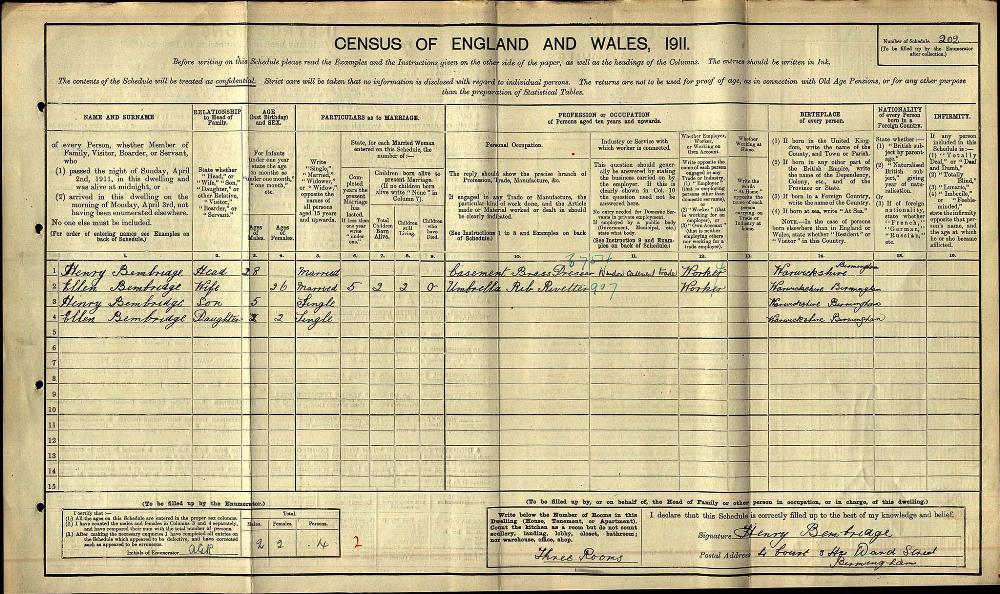 CENSUS OF ENGLAND AND WALES, 1911.
Number of Schedule 202
(To be filled up by the Enumerator after collection.)
Before writing on this Schedule please read the Examples and the Instructions given on the other side of the paper, as well as the headings of the Columns. The entries should be written in Ink.
The contents of the Schedule will be treated as confidential. Strict care will be taken that no information is disclosed with regard to individual persons. The returns are not to be used for proof of age, as in connection with Old Age Pensions, or for any other purpose
than the preparation of Statistical Tables.
NAME AND SURNAME
of every Person, whether Member of Family, Visitor, Boarder, or Servant, who
(1) passed the night of Sunday, April 2nd, 1911, in this dwelling and was alive at midnight, or
(2) arrived in this dwelling on the morning of Monday, April 3rd, not having been enumerated elsewhere.
No one else must be included.
(For order of entering names see Examples on back of Schedule.)
RELATIONSHIP to Head of Family.
State whether "Head," or "Wife," "Son," "Daughter," or other Relative, "Visitor," "Boarder," or "Servant."
AGE (last Birthday) and SEX.
For Infants under one year state the age in months as "under one month," "one month," etc.
Ages of Males.
Ages of Females.
PARTICULARS as to MARRIAGE.
Write "Single," "Married," "Widower," or "Widow," opposite the names of all persons aged 15 years and upwards.
State, for each Married Woman entered on this Schedule, the number of:—
Completed years the present Marriage has lasted. If less than one year write "under one."
Children born alive to present Marriage. (If no children born alive write "None" in Column 7).
Total Children Born Alive.
Children still Living.
Children who have Died.
PROFESSION or OCCUPATION
of Persons aged ten years and upwards.
Personal Occupation.
The reply should show the precise branch of Profession, Trade, Manufacture, &c.
If engaged in any Trade or Manufacture, the particular kind of work done, and the Article made or Material worked or dealt in should be clearly indicated.
(See Instructions 1 to 8 and Examples on back of Schedule.)
Industry or Service with which worker is connected.
This question should generally be answered by stating the business carried on by the employer. If this is clearly shown in Col. 10 the question need not be answered here.
No entry needed for Domestic Servants in private employment.
If employed by a public body (Government, Municipal, etc.) state what body.
(See Instruction 9 and Examples on back of Schedule.)
Whether Employer, Worker, or Working on Own Account.
Whether Working at Home.
Write the words "At Home" opposite the name of each person carrying on Trade or Industry at home.
BIRTHPLACE of every person.
(1) If born in the United Kingdom, write the name of the County, and Town or Parish.
(2) If born in any other part of the British Empire, write the name of the Dependency, Colony, etc., and of the Province or State.
(3) If born in a Foreign Country, write the name of the Country.
(4) If born at sea, write "At Sea."
NOTE.—In the case of persons born elsewhere than in England or Wales, state whether "Resident" or "Visitor" in this Country.
NATIONALITY of every Person born in a Foreign Country.
INFIRMITY.
1 Henry Bembridge Head 28 Married Casement Brass Window Casement Trade Worker Warwickshire Birmingham
2 Ellen Bembridge Wife 26 Married 5 2 2 0 Umbrella Rib Rivetter 907 Worker Warwickshire Birmingham
3 Henry Bembridge Son 5 Single Warwickshire Birmingham
4 Ellen Bembridge Daughter 2 Single Warwickshire Birmingham
5
6
7
8
9
10
11
12
13
14
15
(To be filled up by the Enumerator.)
I certify that:—
(1.) All the ages on this Schedule are entered in the proper sex columns.
(2.) I have counted the males and females in Columns 3 and 4 separately, and have compared their sum with the total number of persons.
(3.) After making the necessary enquiries I have completed all entries on the Schedule which appeared to be defective, and have corrected such as appeared to be erroneous.
Initials of Enumerator
Total.
Males. Females. Persons.
2 2 4
2
(To be filled up by, or on behalf of, the Head of Family or other person in occupation, or in charge, of this dwelling.)
Write below the Number of Rooms in this Dwelling (House, Tenement, or Apartment). Count the kitchen as a room but do not count scullery, landing, lobby, closet, bathroom; nor warehouse, office, shop.
Three Rooms
I declare that this Schedule is correctly filled up to the best of my knowledge and belief.
Signature Henry Bembridge
Postal Address 4 Court 3 Hse Ward Street
Birmingham